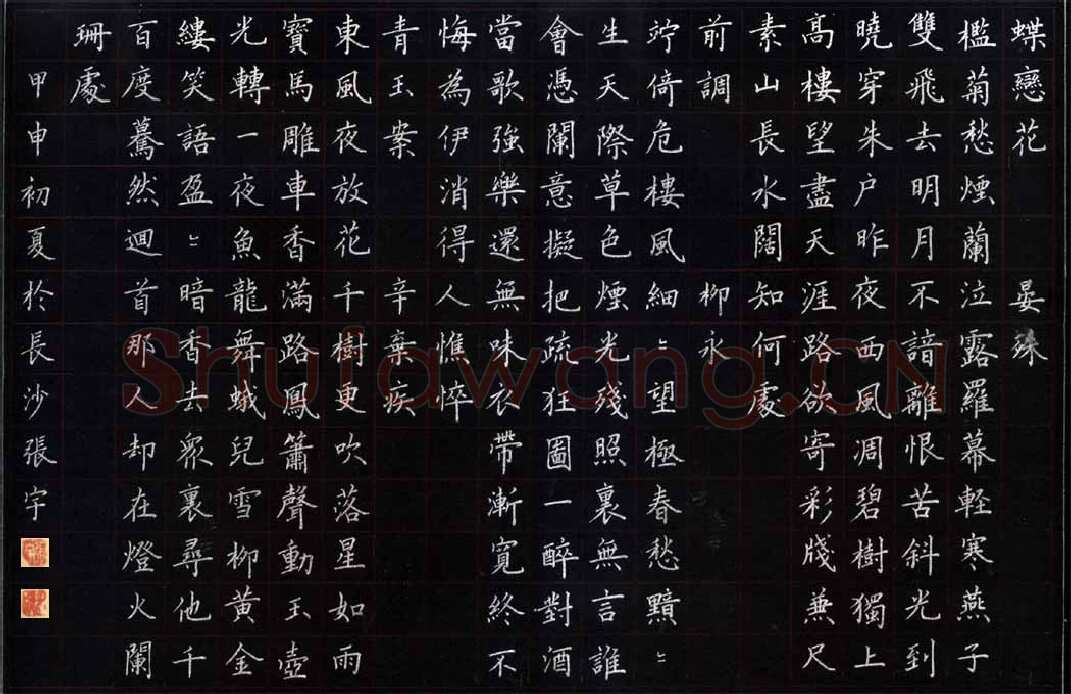 蝶戀花 晏殊
檻菊愁煙蘭泣露羅幕輕寒燕子
雙飛去明月不諳離恨苦斜光到
曉穿朱户昨夜西風凋碧樹獨上
高樓望盡天涯路欲寄彩牋兼尺
素山長水闊知何處
前調 柳永
竚倚危樓風細〻望極春愁黯〻
生天際草色煙光殘照裏無言誰
會憑闌意擬把疏狂圖一醉對酒
當歌強樂還無味衣帶漸寬終不
悔為伊消得人憔悴
青玉案 辛棄疾
東風夜放花千樹更吹落星如雨
寶馬雕車香滿路鳳簫聲動玉壺
光轉一夜魚龍舞蛾兒雪柳黃金
縷笑語盈〻暗香去眾裏尋他千
百度驀然迴首那人却在燈火闌
珊處
甲申初夏於長沙張宇
Shufawang.CN